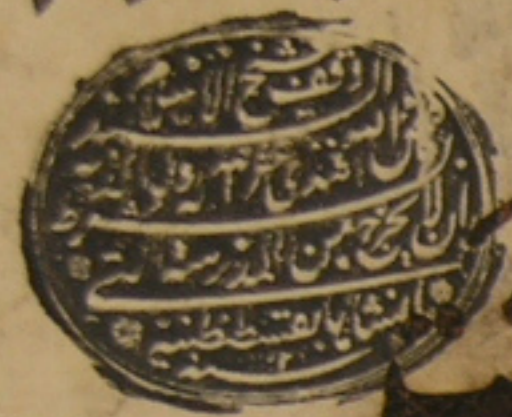 وقف شيخ الاسلام
السيد فيض الله افندى غفر الله له ولوالديه
بشرط ان لا يخرج من المدرسة التى
انشاها بقسطنطينية
سنة